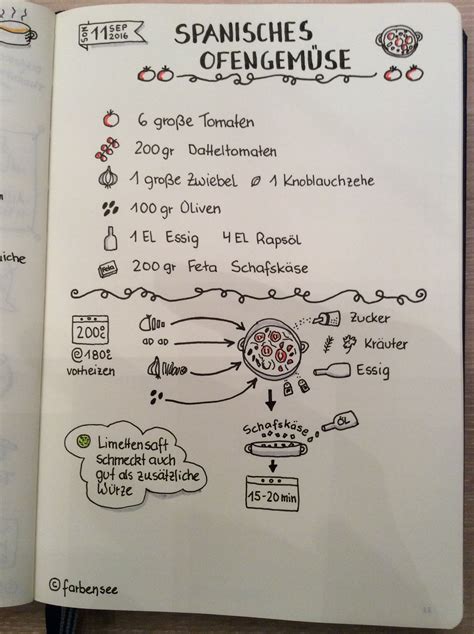 SON 11 SEP 2016
SPANISCHES
OFENGEMÜSE
6 große Tomaten
200gr Datteltomaten
1 große Zwiebel 1 Knoblauchzehe
100 gr Oliven
1 EL Essig 4 EL Rapsöl
Feta 200 gr Feta Schafskäse
200°
@180°
vorheizen
Zucker
Kräuter
Essig
Schafskäse
ÖL
15-20 min
Limettensaft
schmeckt auch
gut als zusätzliche
Würze
© farbensee
uiche